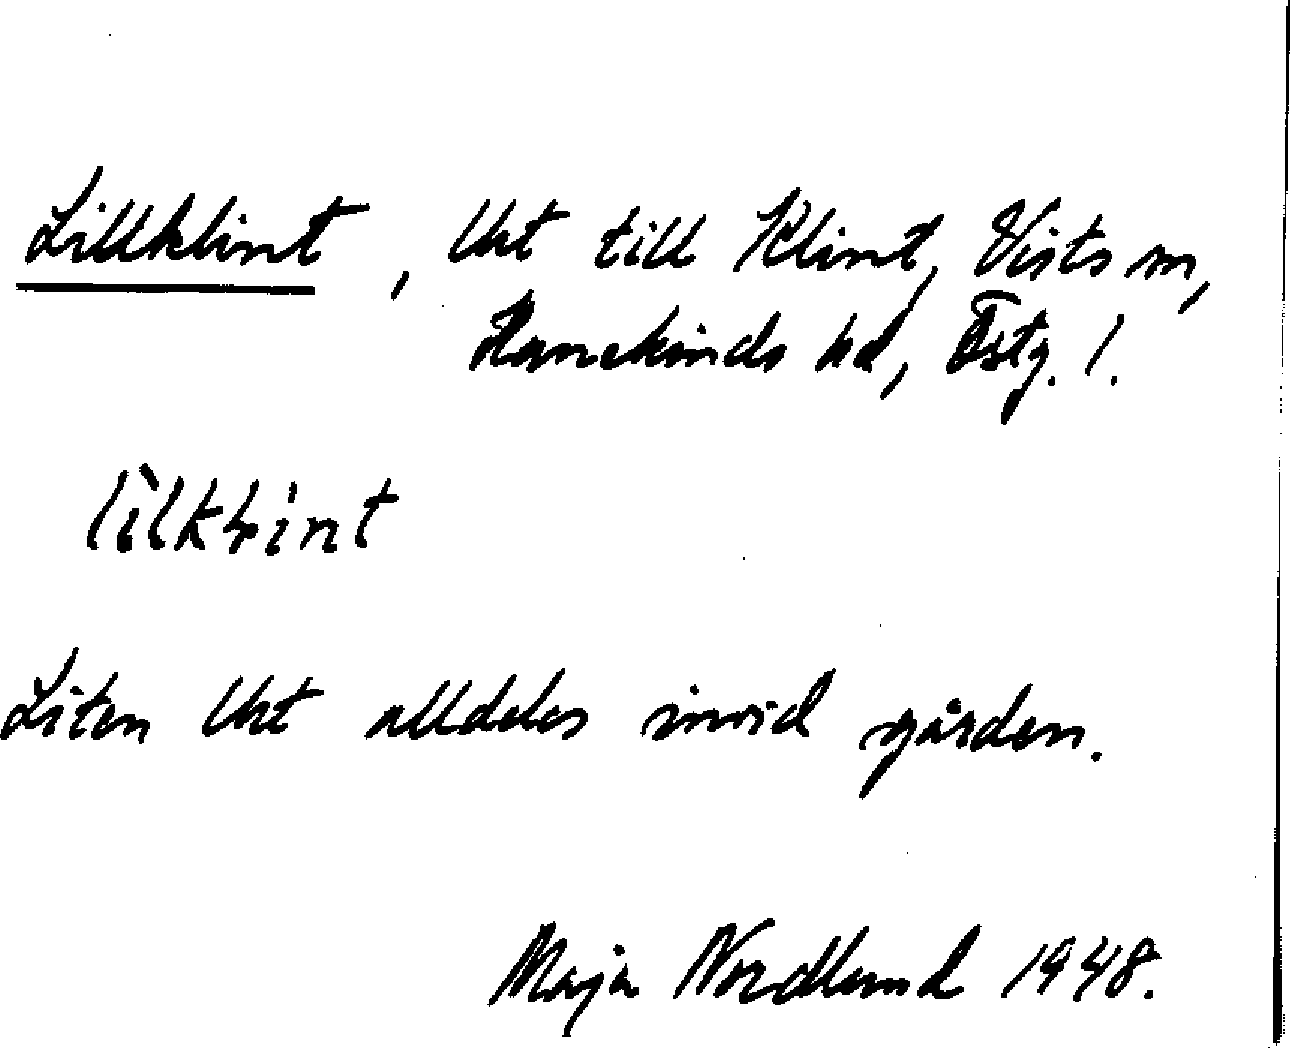 Lillklint, lht till Klint, Vists sn,
Hanekinds hd, Östg. l.
lìlkłint
Liten lht alldeles invid gården.
Maja Nordlund 1948.